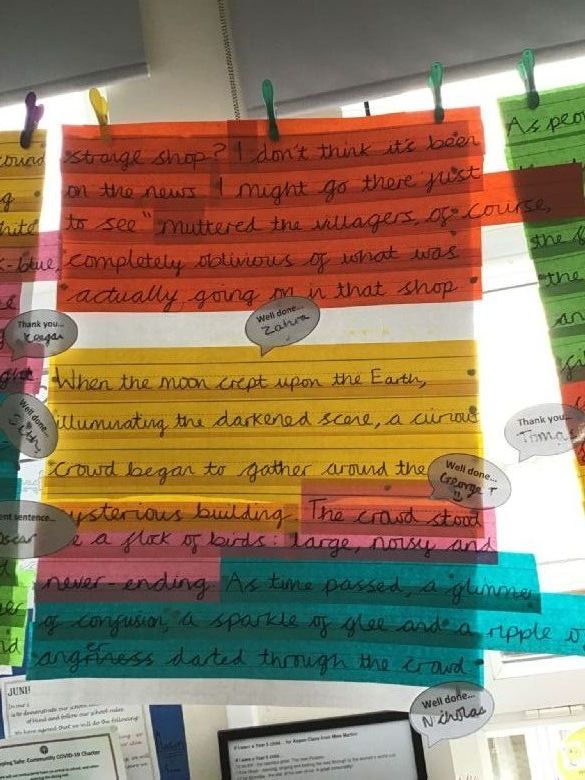 strange shop? I don't think it's been
on the news I might go there just
to see" muttered the villagers, of course,
completely oblivious of what was
actually going on in that shop
Well done...
Zahra
When the moon crept upon the Earth,
illuminating the darkened scene, a curious
crowd began to gather around the
Well done...
George T
mysterious building. The crowd stood
a flock of birds: large, noisy and
never-ending. As time passed, a glimmer
of confusion, a sparkle of glee and a ripple o
angriness darted through the crowd
Well done...
Nicholas
Thank you...
Keegan
Well done...
ent sentence...
Oscar
-blue,
As peo
the
the
an
Thank you...
Tomas
JUNI!
to demonstrate our school
of Hand and follow our school rules.
have agreed that we will do the following:
ping Safe: Community COVID-19 Charter